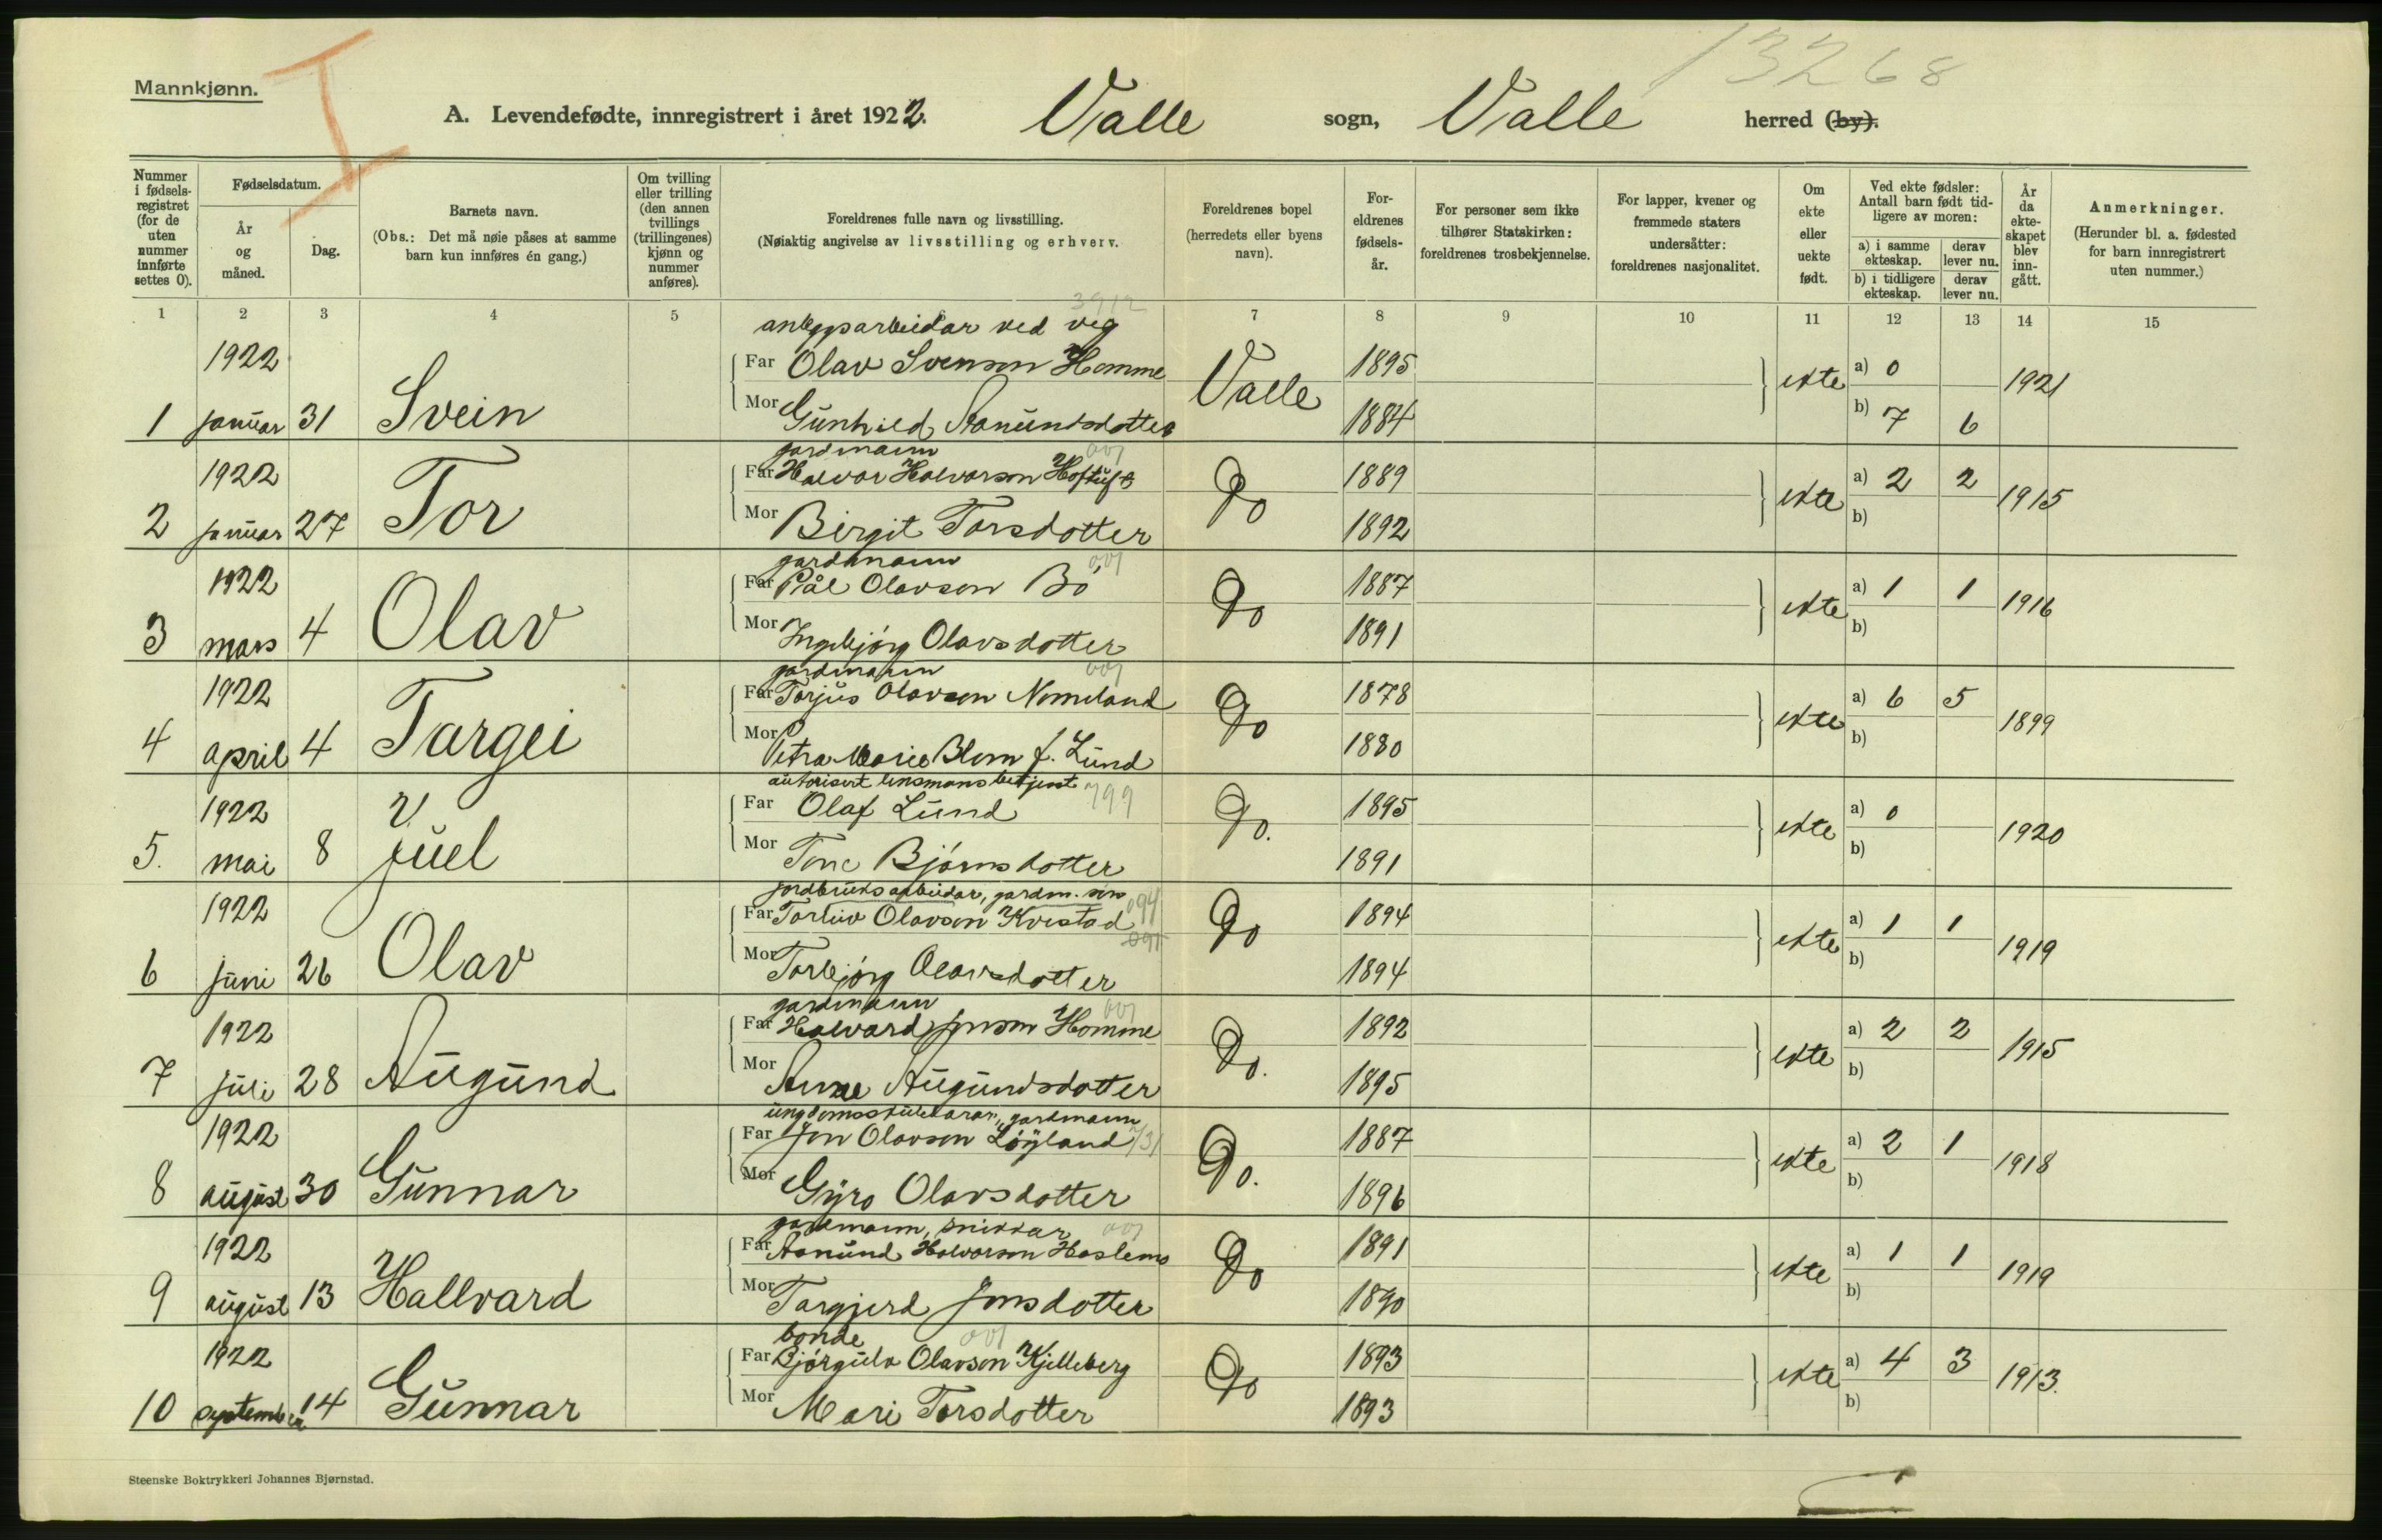 13268
Mannkjønn.
I
A. Levendefødte, innregistrert i året 1922. Valle sogn, Valle herred (by).
Nummer i fødselsregistret (for de uten nummer innførte settes 0).
Fødselsdatum.
År og måned.
Dag.
Barnets navn.
(Obs.: Det må nøie påses at samme barn kun innføres én gang.)
Om tvilling eller trilling (den annen tvillings (trillingenes) kjønn og nummer anføres).
Foreldrenes fulle navn og livsstilling.
(Nøiaktig angivelse av livsstilling og erhverv.
Foreldrenes bopel (herredets eller byens navn).
Foreldrenes fødselsår.
For personer som ikke tilhører Statskirken: foreldrenes trosbekjennelse.
For lapper, kvener og fremmede staters undersåtter: foreldrenes nasjonalitet.
Om ekte eller uekte født.
Ved ekte fødsler: Antall barn født tidligere av moren:
a) i samme ekteskap. derav lever nu.
b) i tidligere ekteskap. derav lever nu.
År da ekteskapet blev inngått.
Anmerkninger.
(Herunder bl. a. fødested for barn innregistrert uten nummer.)
1 2 3 4 5 7 8 9 10 11 12 13 14 15
3912
anleggsarbeidar ved veg
1922 Far Olav Svenson Homme Valle 1895 ekte a) 0 1921
1 januar 31 Svein Mor Gunhild Aanundsdotter 1884 b) 7 6
gardmann 001
1922 Far Halvor Halvorson Hoftuft Do 1889 ekte a) 2 2 1915
2 januar 27 Tor Mor Birgit Torsdotter 1892 b)
gardmann 001
1922 Far Pål Olavson Bö Do 1887 ekte a) 1 1 1916
3 mars 4 Olav Mor Ingebjörg Olavsdotter 1891 b)
gardmann 001
1922 Far Torjus Olavson Nomeland Do 1878 ekte a) 6 5 1899
4 april 4 Targei Mor Petra Marie Blom f. Lund 1880 b)
autorisert lensmansbetjent 799
1922 Far Olaf Lund Do. 1895 ekte a) 0 1920
5. mai 8 Juel Mor Tone Björnsdotter 1891 b)
jordbruksarbeidar, gardm. son 094
1922 Far Torleiv Olavson Kvestad Do 1894 ekte a) 1 1 1919
6 juni 26 Olav Mor Torbjörg Olavsdotter 1894 b)
gardmann 001
1922 Far Halvard Jonson Homme Do. 1892 ekte a) 2 2 1915
7 juli 28 Augund Mor Anne Augundsdotter 1895 b)
ungdomsskulelærar, gardmann
1922 Far Jon Olavson Löyland 731 Do. 1887 ekte a) 2 1 1918
8 august 30 Gunnar Mor Gyro Olavsdotter 1896 b)
gardmann, snikkar 001
1922 Far Aanund Halvorson Haslemo Do 1891 ekte a) 1 1 1919
9 august 13 Hallvard Mor Targjerd Jonsdotter 1890 b)
bonde 001
1922 Far Björgulv Olavson Kjelleberg Do 1893 ekte a) 4 3 1913.
10 september 14 Gunnar Mor Mari Torsdotter 1893 b)
Steenske Boktrykkeri Johannes Bjørnstad.